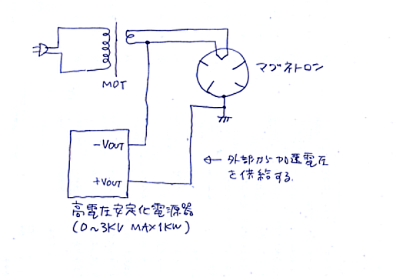 MOT
マグネトロン
-VOUT
+VOUT
← 外部から加速電圧
を供給する
高電圧安定化電源器
(0~3KV MAX1KW)